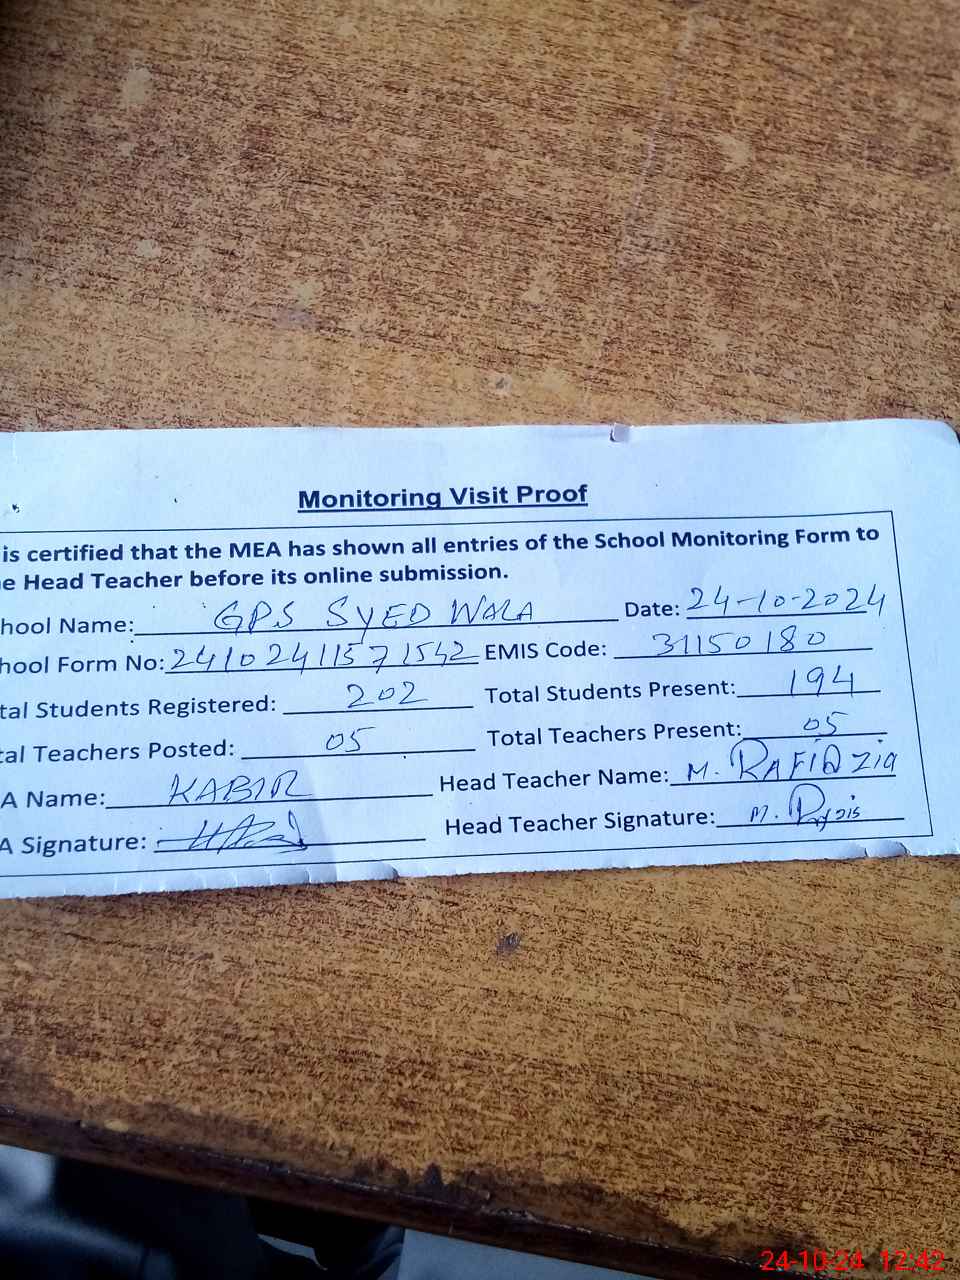 Monitoring Visit Proof
is certified that the MEA has shown all entries of the School Monitoring Form to
e Head Teacher before its online submission.
hool Name: GPS SYED WALA Date: 24-10-2024
hool Form No: 24102411571542 EMIS Code: 31150180
tal Students Registered: 202 Total Students Present: 194
tal Teachers Posted: 05 Total Teachers Present: 05
A Name: KABIR Head Teacher Name: M. RAFIQ Zia
A Signature: Head Teacher Signature: M.
24-10-24 12:42